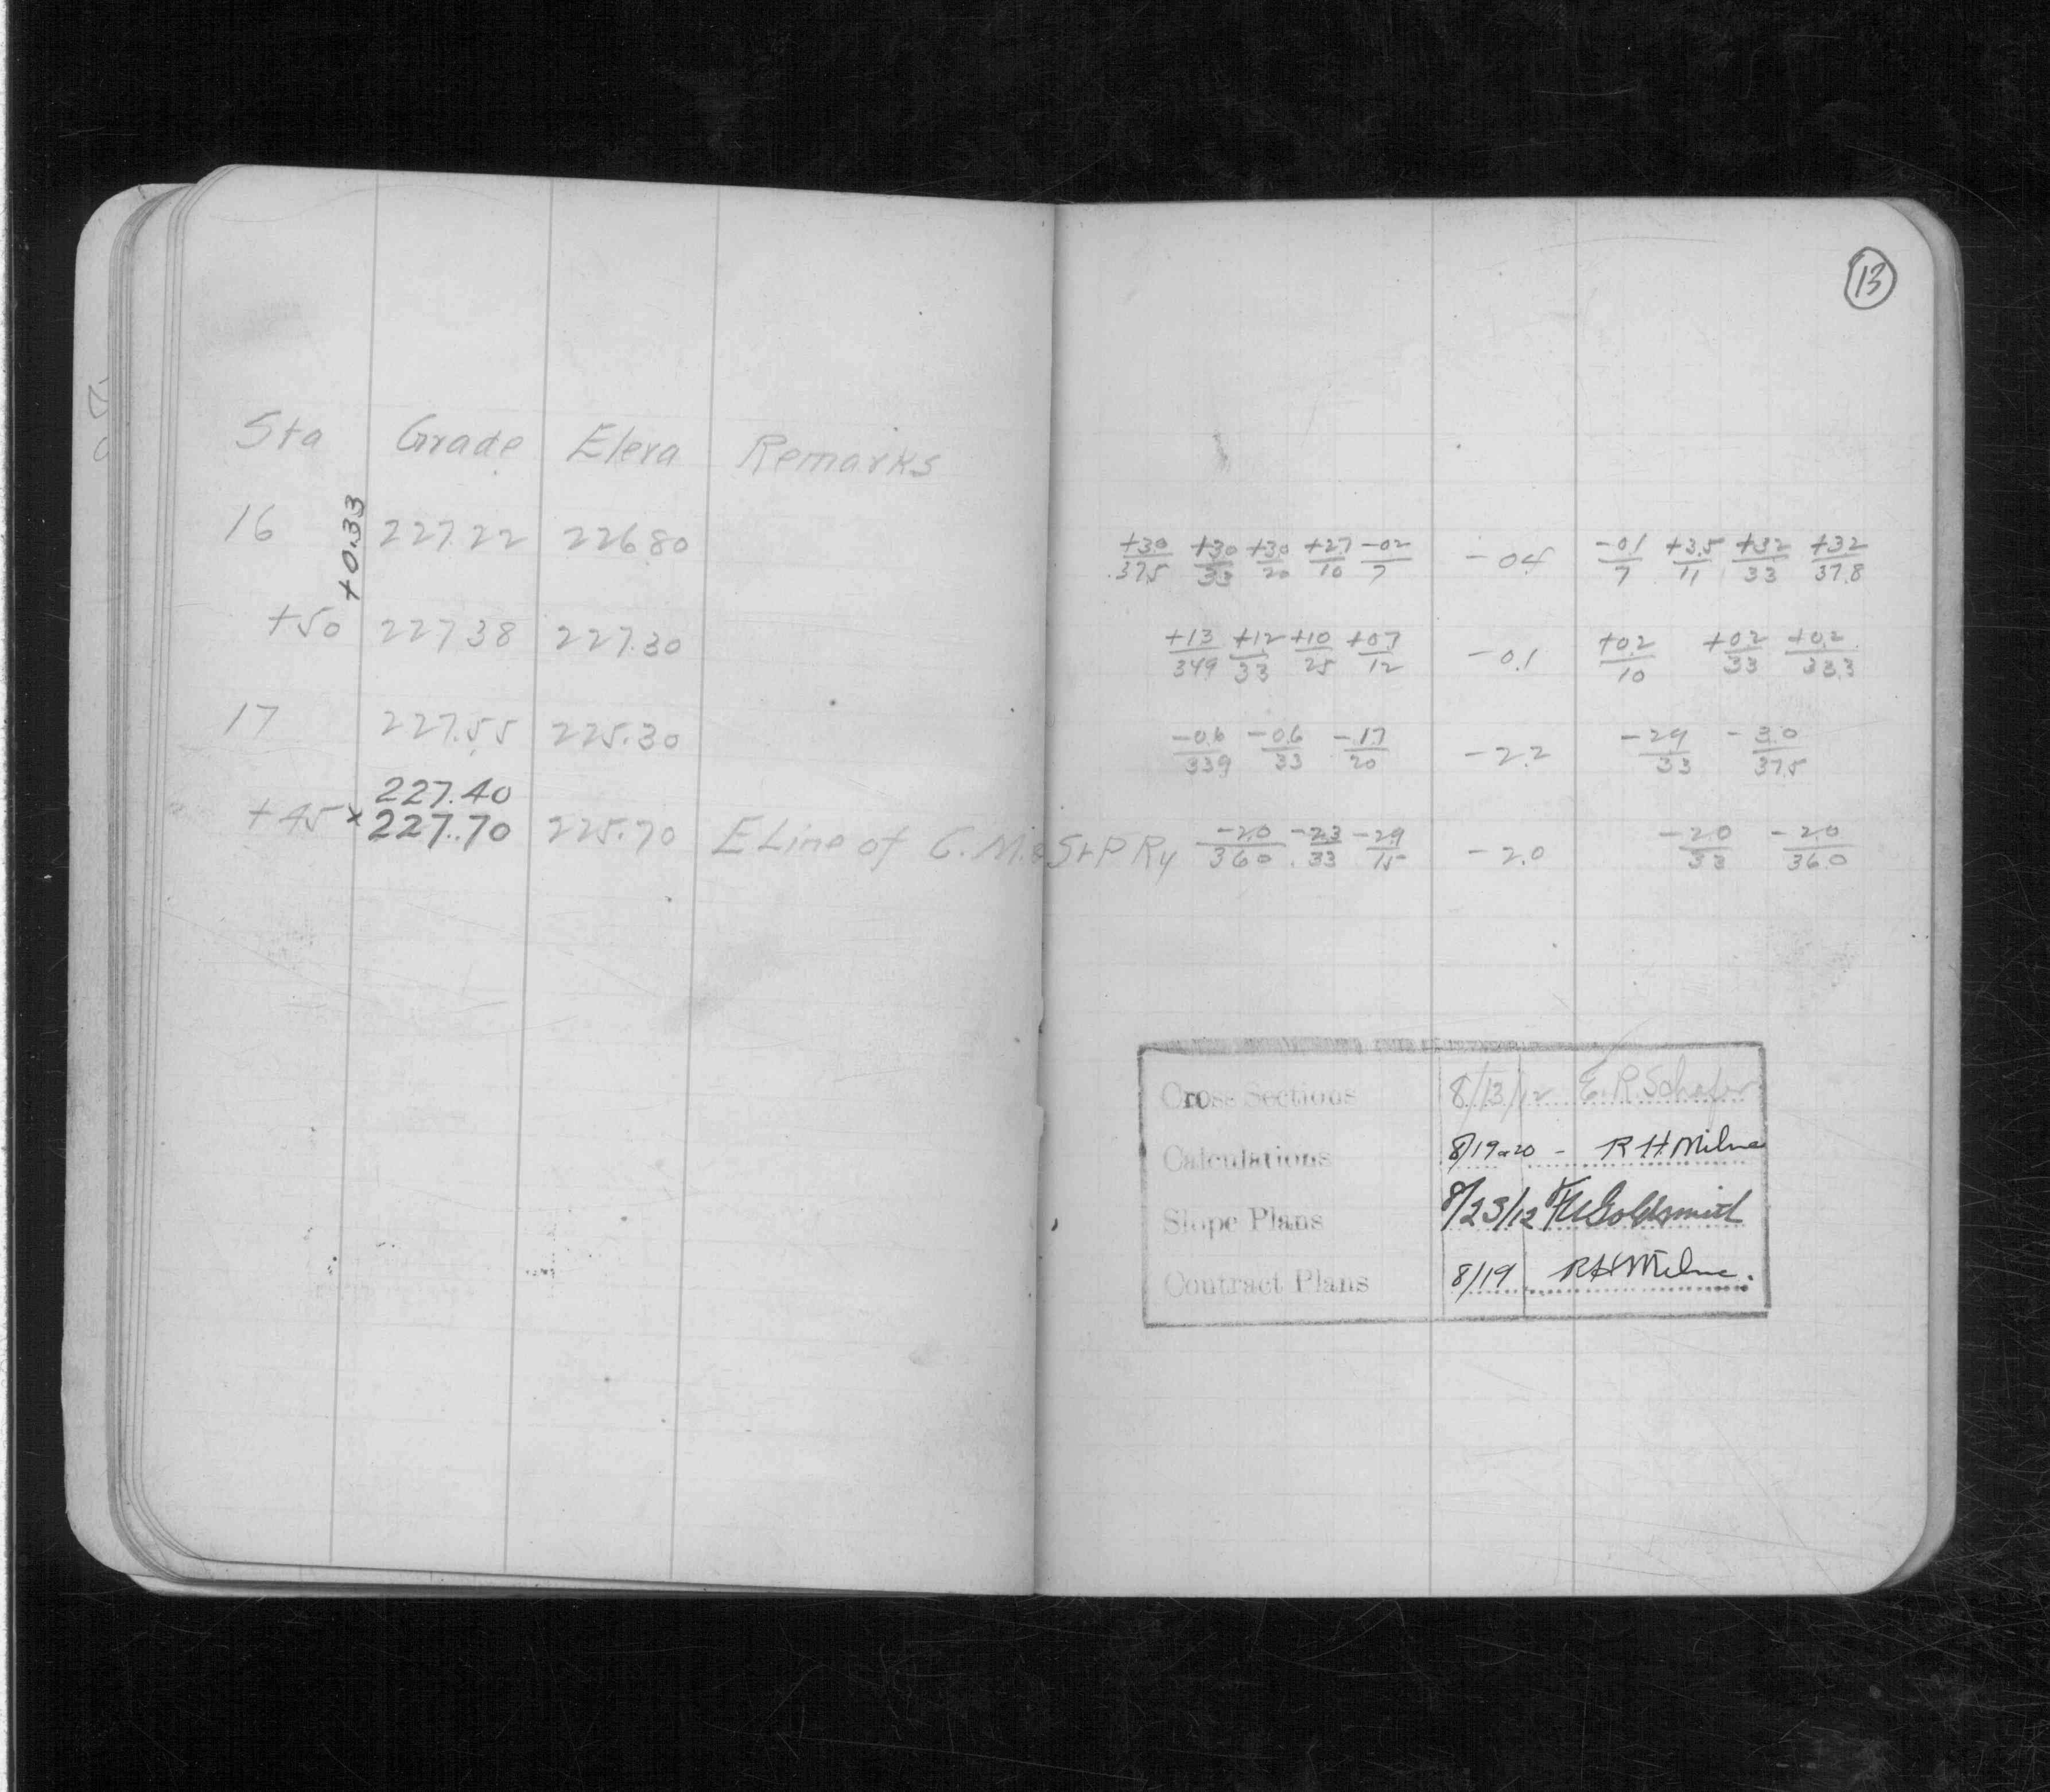 13
Sta Grade Eleva Remarks
+0.33
16 227.22 226.80 +3.0/37.5 +3.0/33 +3.0/20 +2.7/10 -0.2/7 -0.4 -0.1/7 +3.5/11 +3.2/33 +3.2/37.8
+50 227.38 227.30 +1.3/34.9 +1.2/33 +1.0/25 +0.7/12 -0.1 +0.2/10 +0.2/33 +0.2/33.3
17 227.55 225.30 -0.6/33.9 -0.6/33 -1.7/20 -2.2 -2.9/33 -3.0/37.5
227.40
+45 x 227.70 225.70 E Line of C. M. & St P Ry -2.0/36.0 -2.3/33 -2.9/15 -2.0 -2.0/33 -2.0/36.0
Cross Sections 8/13/12 E. R. Schafer
Calculations 8/19-20 - R H Milne
Slope Plans 8/23/12 Goldsmith
Contract Plans 8/19 R H Milne.